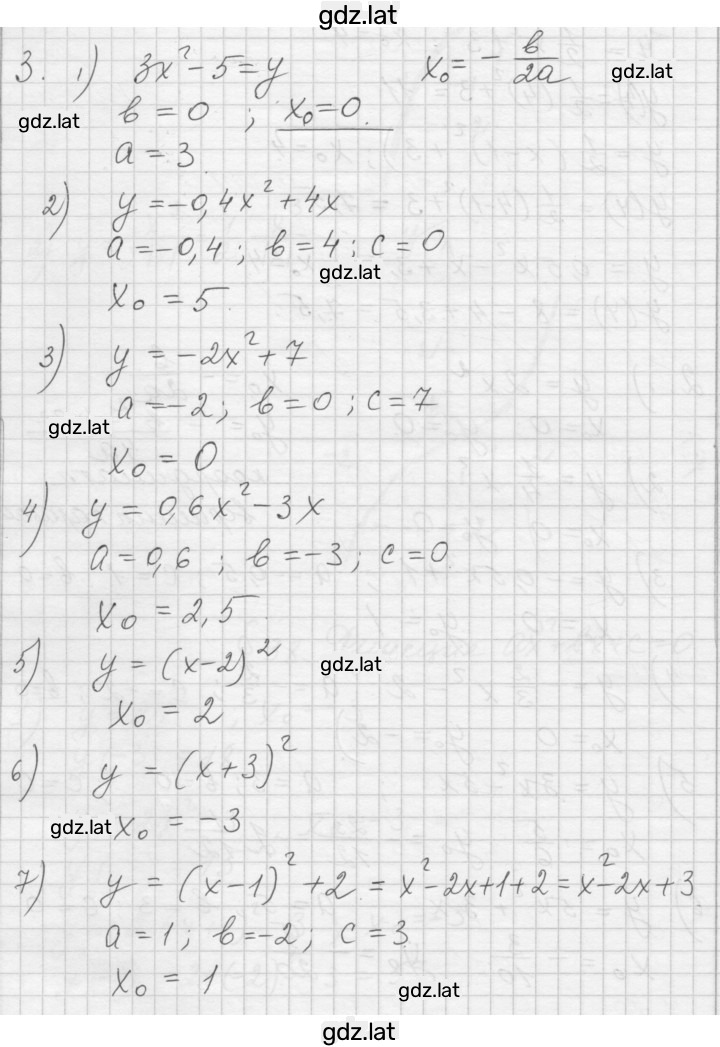 gdz.lat
3. 1) 3x² - 5 = y    x₀ = - в/2a    gdz.lat
gdz.lat в = 0 ; x₀ = 0.
a = 3
2) y = -0,4x² + 4x
a = -0,4 ; в = 4 ; c = 0
gdz.lat
x₀ = 5.
3) y = -2x² + 7
a = -2 ; в = 0 ; c = 7
gdz.lat
x₀ = 0
4) y = 0,6x² - 3x
a = 0,6 ; в = -3 ; c = 0.
x₀ = 2,5.
5) y = (x-2)² gdz.lat
x₀ = 2
6) y = (x+3)²
gdz.lat x₀ = -3
7) y = (x-1)² + 2 = x² - 2x + 1 + 2 = x² - 2x + 3.
a = 1 ; в = -2 ; c = 3
x₀ = 1 gdz.lat
gdz.lat